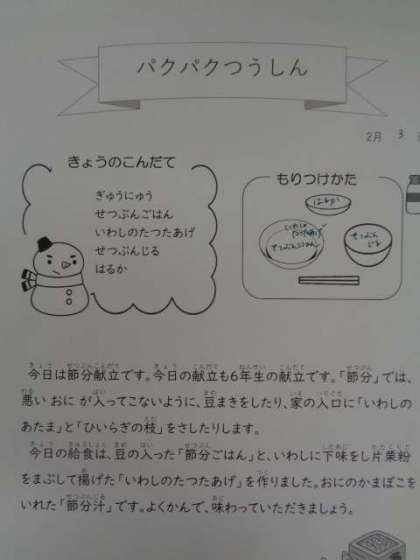 パクパクつうしん
2月 3
きょうのこんだて
ぎゅうにゅう
せつぶんごはん
いわしのたつたあげ
せつぶんじる
はるか
もりつけかた
はるか
いわしの
たつたあげ
せつぶんごはん
せつぶん
じる
今日は節分献立です。今日の献立も6年生の献立です。「節分」では、
悪い おに が入ってこないように、豆まきをしたり、家の入口に「いわしの
あたま」と「ひいらぎの枝」をさしたりします。
今日の給食は、豆の入った「節分ごはん」と、いわしに下味をし片栗粉
をまぶして揚げた「いわしのたつたあげ」を作りました。おにのかまぼこを
いれた「節分汁」です。よくかんで、味わっていただきましょう。